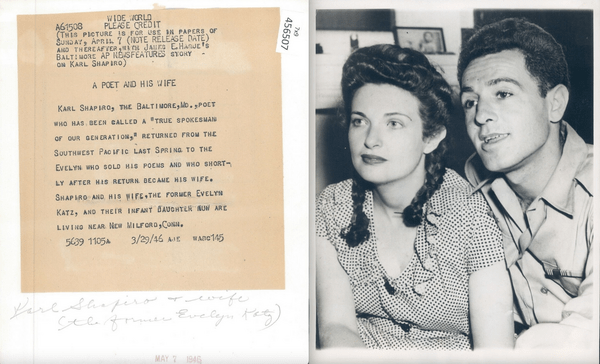 WIDE WORLD
A61508 PLEASE CREDIT
(THIS PICTURE IS FOR USE IN PAPERS OF
SUNDAY, APRIL 7 (NOTE RELEASE DATE)
AND THEREAFTER, WITH JAMES E. HAGUE'S
BALTIMORE AP NEWSFEATURES STORY
ON KARL SHAPIRO)
456507
A POET AND HIS WIFE
KARL SHAPIRO, THE BALTIMORE, MD., POET
WHO HAS BEEN CALLED A "TRUE SPOKESMAN
OF OUR GENERATION," RETURNED FROM THE
SOUTHWEST PACIFIC LAST SPRING TO THE
EVELYN WHO SOLD HIS POEMS AND WHO SHORT-
LY AFTER HIS RETURN BECAME HIS WIFE.
SHAPIRO AND HIS WIFE, THE FORMER EVELYN
KATZ, AND THEIR INFANT DAUGHTER NOW ARE
LIVING NEAR NEW MILFORD, CONN.
5639 1105A 3/29/46
Karl Shapiro + wife
(the former Evelyn Katz)
MAY 7 1946